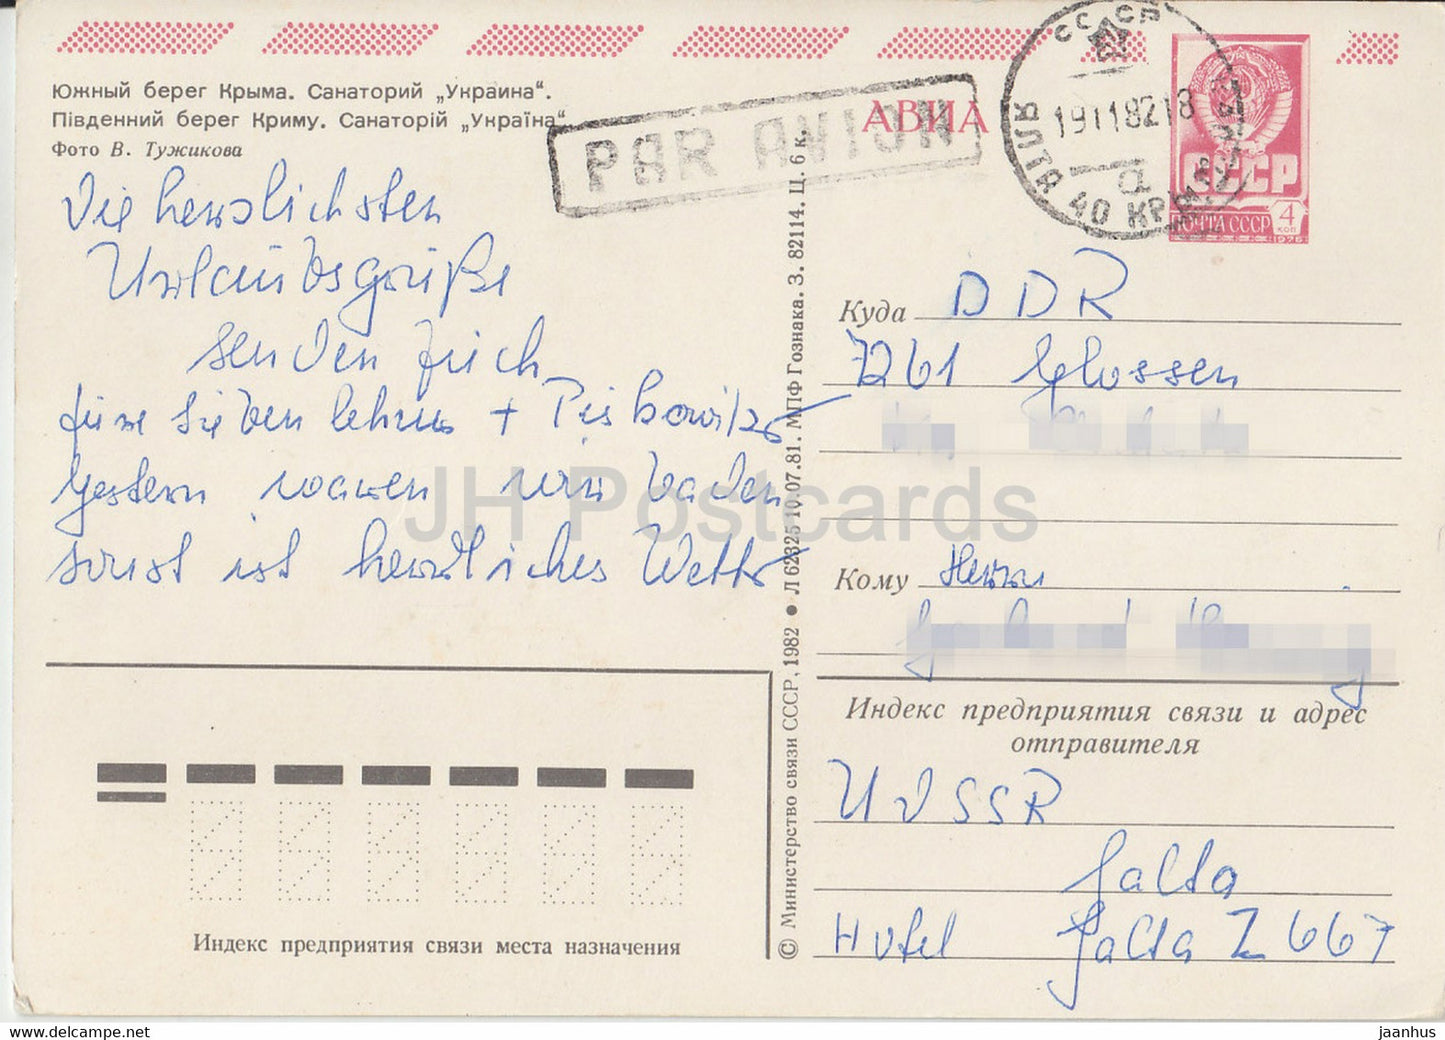 Южный берег Крыма. Санаторий „Украина“.
Південний берег Криму. Санаторій „Україна“
Фото В. Тужикова
PAR AVION
АВИА
СССР
ЯЛТА 40 КРЫМ
19111 82 18
а
СССР
ПОЧТА СССР 4 КОП
1976
Die herzlichsten
Urlaubsgrüße
senden Euch
Gestern waren wir baden
sonst ist herrliches Wetter
Куда DDR
7261 Glossen
Кому Herrn
Индекс предприятия связи и адрес
отправителя
UdSSR
Jalta
Hotel Jalta Z 667
Индекс предприятия связи места назначения
© Министерство связи СССР, 1982 ● Л 62325 10.07.81. МПФ Гознака. З. 82114. Ц. 6 к.
JH Postcards
www.delcampe.net
jaanhus